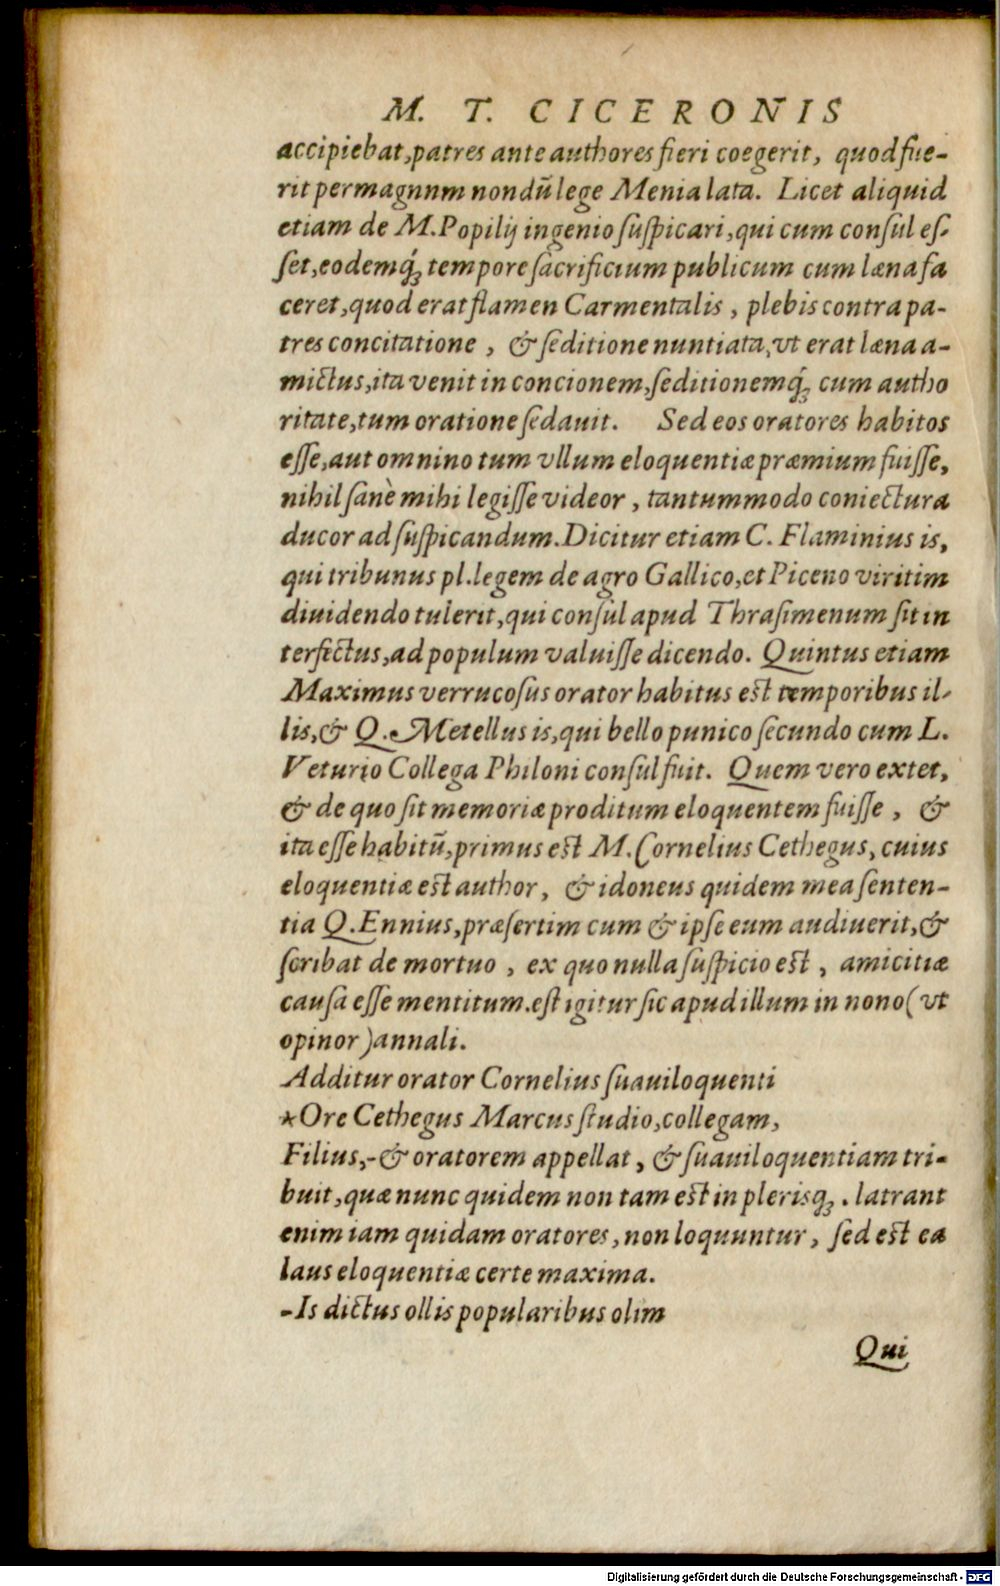 M. T. CICERONIS
accipiebat, patres ante authores fieri coegerit, quod fue-
rit permagnnm nondū lege Menia lata. Licet aliquid
etiam de M. Popilij ingenio suspicari, qui cum consul es-
set, eodemq́; tempore sacrificium publicum cum læna fa
ceret, quod erat flamen Carmentalis, plebis contra pa-
tres concitatione, & seditione nuntiata, vt erat læna a-
mictus, ita venit in concionem, seditionemq́; cum autho
ritate, tum oratione sedauit. Sed eos oratores habitos
esse, aut omnino tum vllum eloquentiæ præmium fuisse,
nihil sanè mihi legisse videor, tantummodo coniectura
ducor ad suspicandum. Dicitur etiam C. Flaminius is,
qui tribunus pl. legem de agro Gallico, et Piceno viritim
diuidendo tulerit, qui consul apud Thrasimenum sit in
terfectus, ad populum valuisse dicendo. Quintus etiam
Maximus verrucosus orator habitus est temporibus il-
lis, & Q. Metellus is, qui bello punico secundo cum L.
Veturio Collega Philoni consul fuit. Quem vero extet,
& de quo sit memoriæ proditum eloquentem fuisse, &
ita esse habitū, primus est M. Cornelius Cethegus, cuius
eloquentiæ est author, & idoneus quidem mea senten-
tia Q. Ennius, præsertim cum & ipse eum audiuerit, &
scribat de mortuo, ex quo nulla suspicio est, amicitiæ
causa esse mentitum. est igitur sic apud illum in nono (vt
opinor) annali.
Additur orator Cornelius suauiloquenti
*Ore Cethegus Marcus studio, collegam,
Filius,-& oratorem appellat, & suauiloquentiam tri-
buit, quæ nunc quidem non tam est in plerisq;. latrant
enim iam quidam oratores, non loquuntur, sed est ea
laus eloquentiæ certe maxima.
-Is dictus ollis popularibus olim
Qui
Digitalisierung gefördert durch die Deutsche Forschungsgemeinschaft - DFG